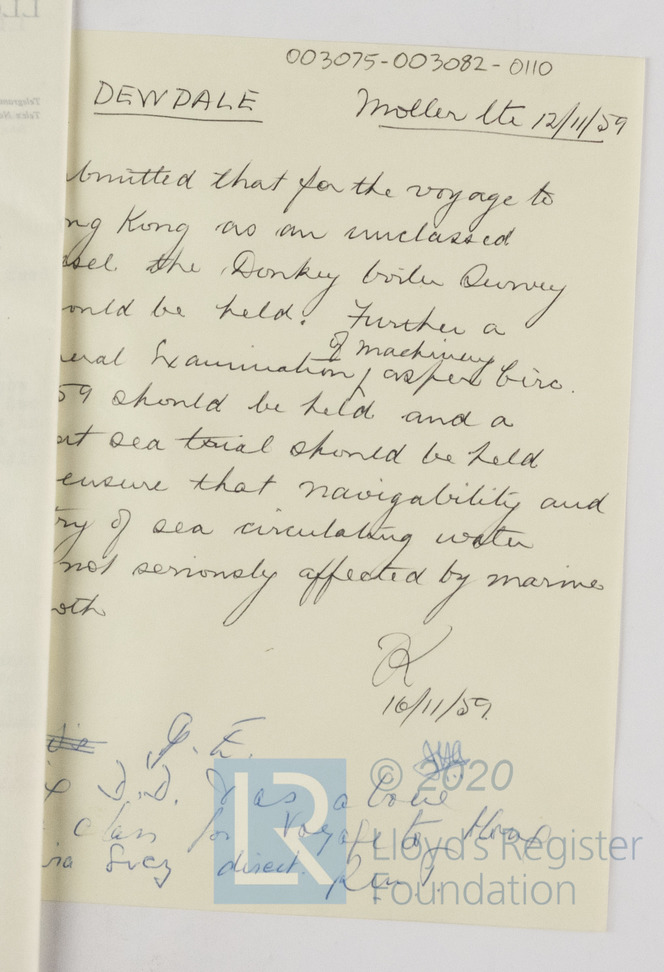 003075-003082-0110
DEWDALE Moller Lte 12/11/59
bmitted that for the voyage to
ng Kong as an unclassed
ssel the Donkey boiler Survey
ould be held. Further a
of machinery
neral Examination as per Circ.
59 should be held and a
ort sea trial should be held
ensure that navigability and
try of sea circulating water
not seriously affected by marine
wth
16/11/59
D.D. & as above
class for Voyage to Hong
via Suez direct.
LR
© 2020
Lloyd's Register
Foundation